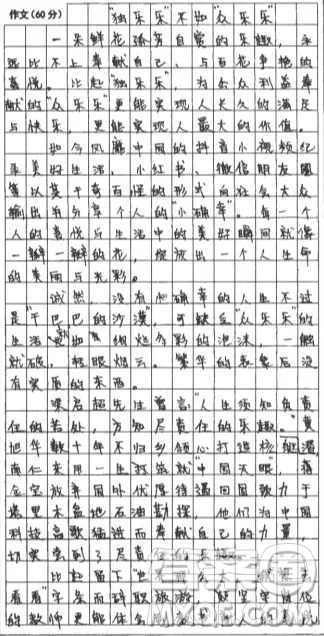 作文(60分)
"独乐乐"不如"众乐乐"
一朵鲜花孤芳自赏的乐趣，永
远比不上奉献自己、与百花争艳的
喜悦。比起"独乐乐"，为公众利益奉
献的"众乐乐"更能实现人长久的满足
与快乐，更能实现人最大的价值。
如今风靡中国的抖音小视频纪
录美好生活、小红书、微信朋友圈
等以其千奇百怪的形式向社会大众
输出并分享个人的"小确幸"。每一个
人的喜悦与生活中的美好瞬间就像
一瓣一瓣的花，绽放出一个人生命
的美丽与光彩。
诚然，没有小确幸的人生不过
是"干巴巴的沙漠"，可缺乏"众乐乐"的
生活也如绚烂多彩的泡沫，一触
就破，转眼烟云。繁华的表象后没
有实质的东西。
梁启超先生曾言："人生须知负责
任的苦处，方知尽责任的乐趣。"黄
旭华数十年不归乡倾心打造核艇潜，
南仁东用一生打造就"中国天眼"，
金宝放弃国外优厚待遇回国致力于
塔里木盆地石油勘探，他们为中国
科技高歌猛进而奉献自己的力量，
切实尝到了尽责任的乐趣。
比起留下"世界那么大，我想去
看看"字条而辞职旅游，坚守岗位
的教师更能体会